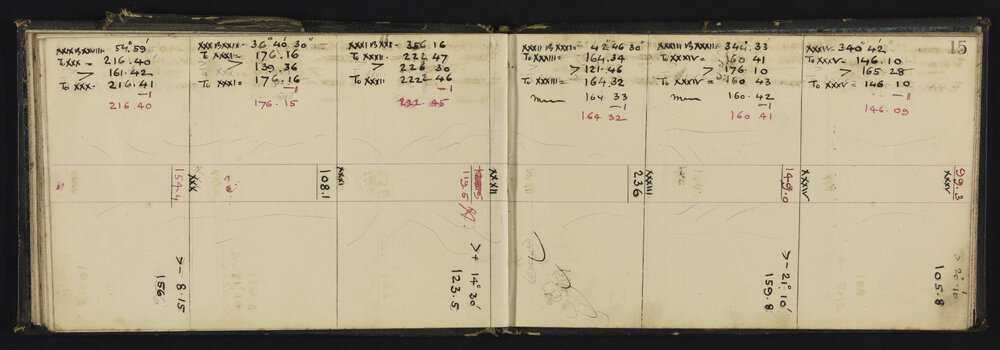 15
XXIX B XXVIII = 54° 59'
To XXX = 216. 40
> 161. 42
To XXX = 216. 41
—1
216. 40
XXX B XXIX = 36° 40' 30"
To XXXI = 176. 16
> 139. 36
To XXXI = 176. 16
—1
176. 15
XXXI B XXX = 356 16
To XXXII = 222. 47
> 226 30
To XXXII = 222 46
—1
222. 45
XXXII B XXXI = 42° 46' 30"
To XXXIII = 164. 34
> 121. 46
To XXXIII = 164. 32
mean 164. 33
—1
164 32
XXXIII B XXXII = 344. 33'
To XXXIV = 160 41
> 176. 10
To XXXIV = 160 43
mean 160. 42
—1
160 41
XXXIV = 340° 42'
To XXXV = 146. 10
> 165 28
To XXXV = 146 10
—1
146. 09
154.4
XXX
108.1
XXXI
119.5
XXXII
236
XXXIII
149.0
XXXIV
99.3
XXXV
> - 8. 15
156
> + 14° 30'
123.5
> - 21° 10'
159.8
> 20° 10'
105.8